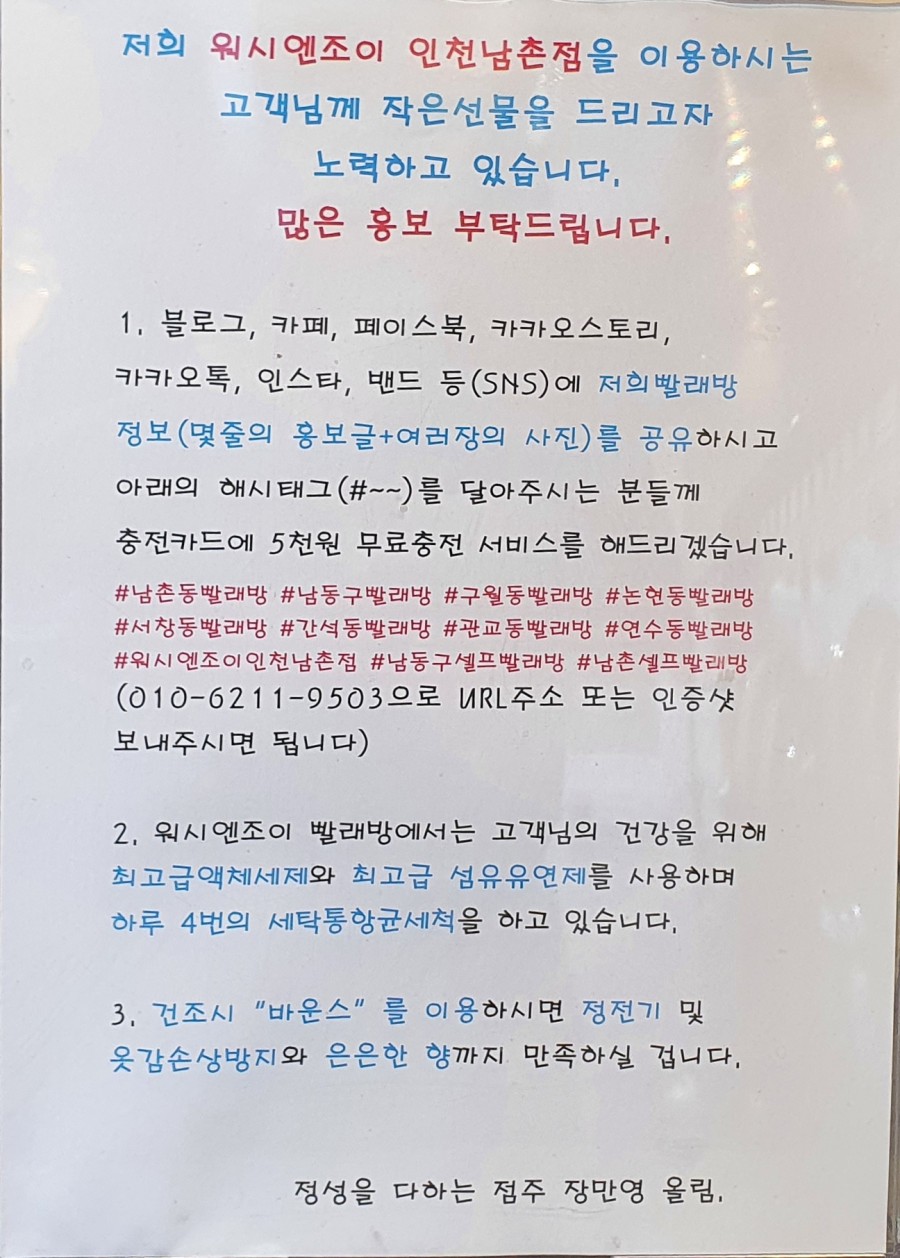 저희 워시엔조이 인천남촌점을 이용하시는
고객님께 작은선물을 드리고자
노력하고 있습니다.
많은 홍보 부탁드립니다.
1. 블로그, 카페, 페이스북, 카카오스토리,
카카오톡, 인스타, 밴드 등(SNS)에 저희빨래방
정보(몇줄의 홍보글+여러장의 사진)를 공유하시고
아래의 해시태그(#~~)를 달아주시는 분들께
충전카드에 5천원 무료충전 서비스를 해드리겠습니다.
#남촌동빨래방 #남동구빨래방 #구월동빨래방 #논현동빨래방
#서창동빨래방 #간석동빨래방 #관교동빨래방 #연수동빨래방
#워시엔조이인천남촌점 #남동구셀프빨래방 #남촌셀프빨래방
(010-6211-9503으로 URL주소 또는 인증샷
보내주시면 됩니다)
2. 워시엔조이 빨래방에서는 고객님의 건강을 위해
최고급액체세제와 최고급 섬유유연제를 사용하며
하루 4번의 세탁통항균세척을 하고 있습니다.
3. 건조시 "바운스" 를 이용하시면 정전기 및
옷감손상방지와 은은한 향까지 만족하실 겁니다.
정성을 다하는 점주 장만영 올림.